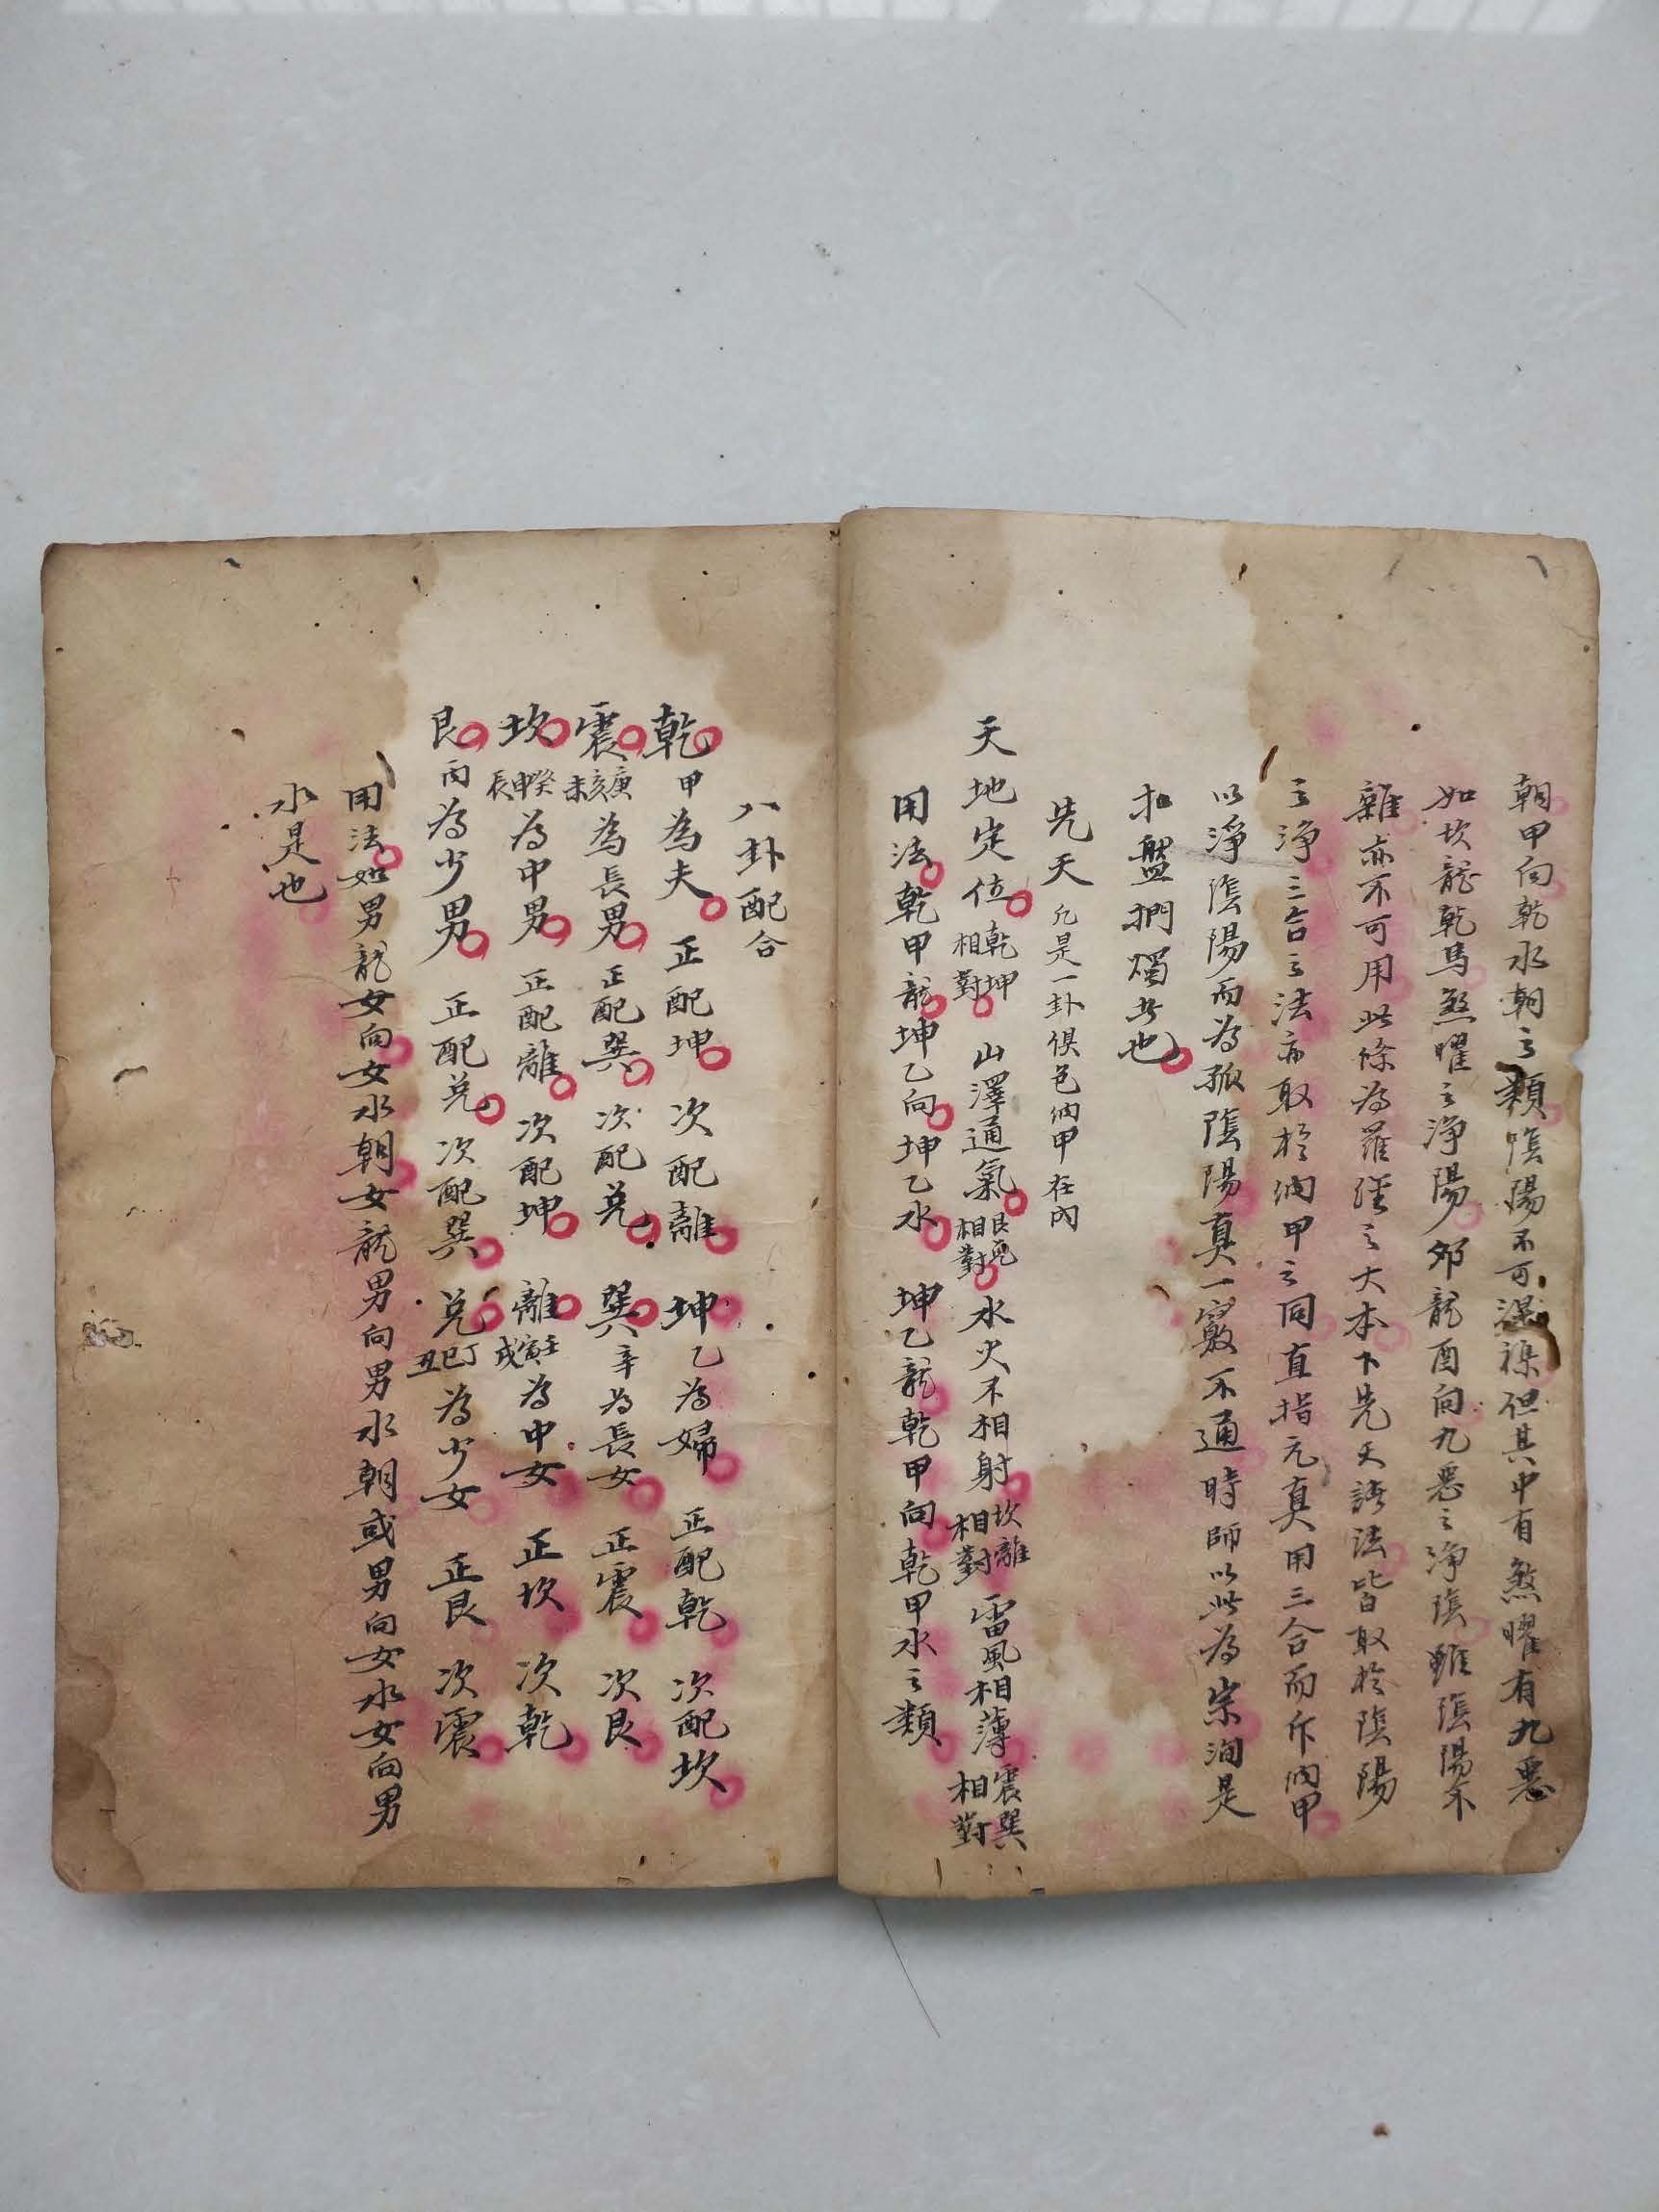 朝甲向乾水朝之類陰陽不可混襍但其中有煞曜有九惡
如坎龍乾馬煞曜之淨陽卯龍酉向九惡之淨陰雖陰陽不
雜亦不可用此條為羅經之大本下先天諸法皆取於陰陽
之淨三合之法亦取於納甲之同直指元真用三合而斥納甲
以淨陰陽而為孤陰陽真一竅不通時師以此為宗洵是
扣盤捫燭者也
先天 凡是一卦俱包納甲在內
天地定位 乾坤相對 山澤通氣 艮兌相對 水火不相射 坎離相對 雷風相薄 震巽相對
用法乾甲龍坤乙向坤乙水 坤乙龍乾甲向乾甲水之類
八卦配合
乾甲為夫 正配坤 次配離 坤乙為婦 正配乾 次配坎
震庚亥未為長男 正配巽 次配兌 巽辛為長女 正震 次艮
坎癸申辰為中男 正配離 次配坤 離壬寅戌為中女 正坎 次乾
艮丙為少男 正配兌 次配巽 兌丁巳丑為少女 正艮 次震
用法如男龍女向女水朝女龍男向男水朝或男向女水女向男
水是也